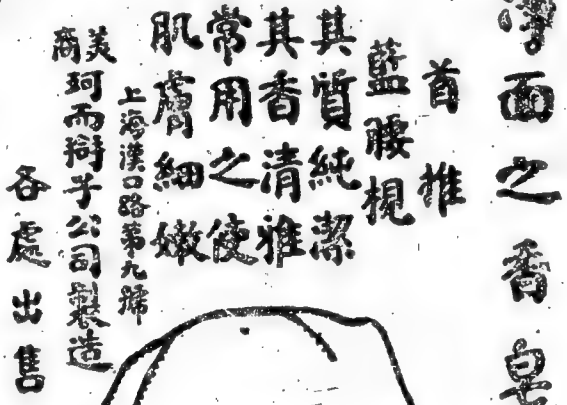 面之香皂
首推
藍腰梘
其質純潔
其香清雅
常用之使
肌膚細嫩
上海漢口路第九號
美商珂而子公司製造
各處出售